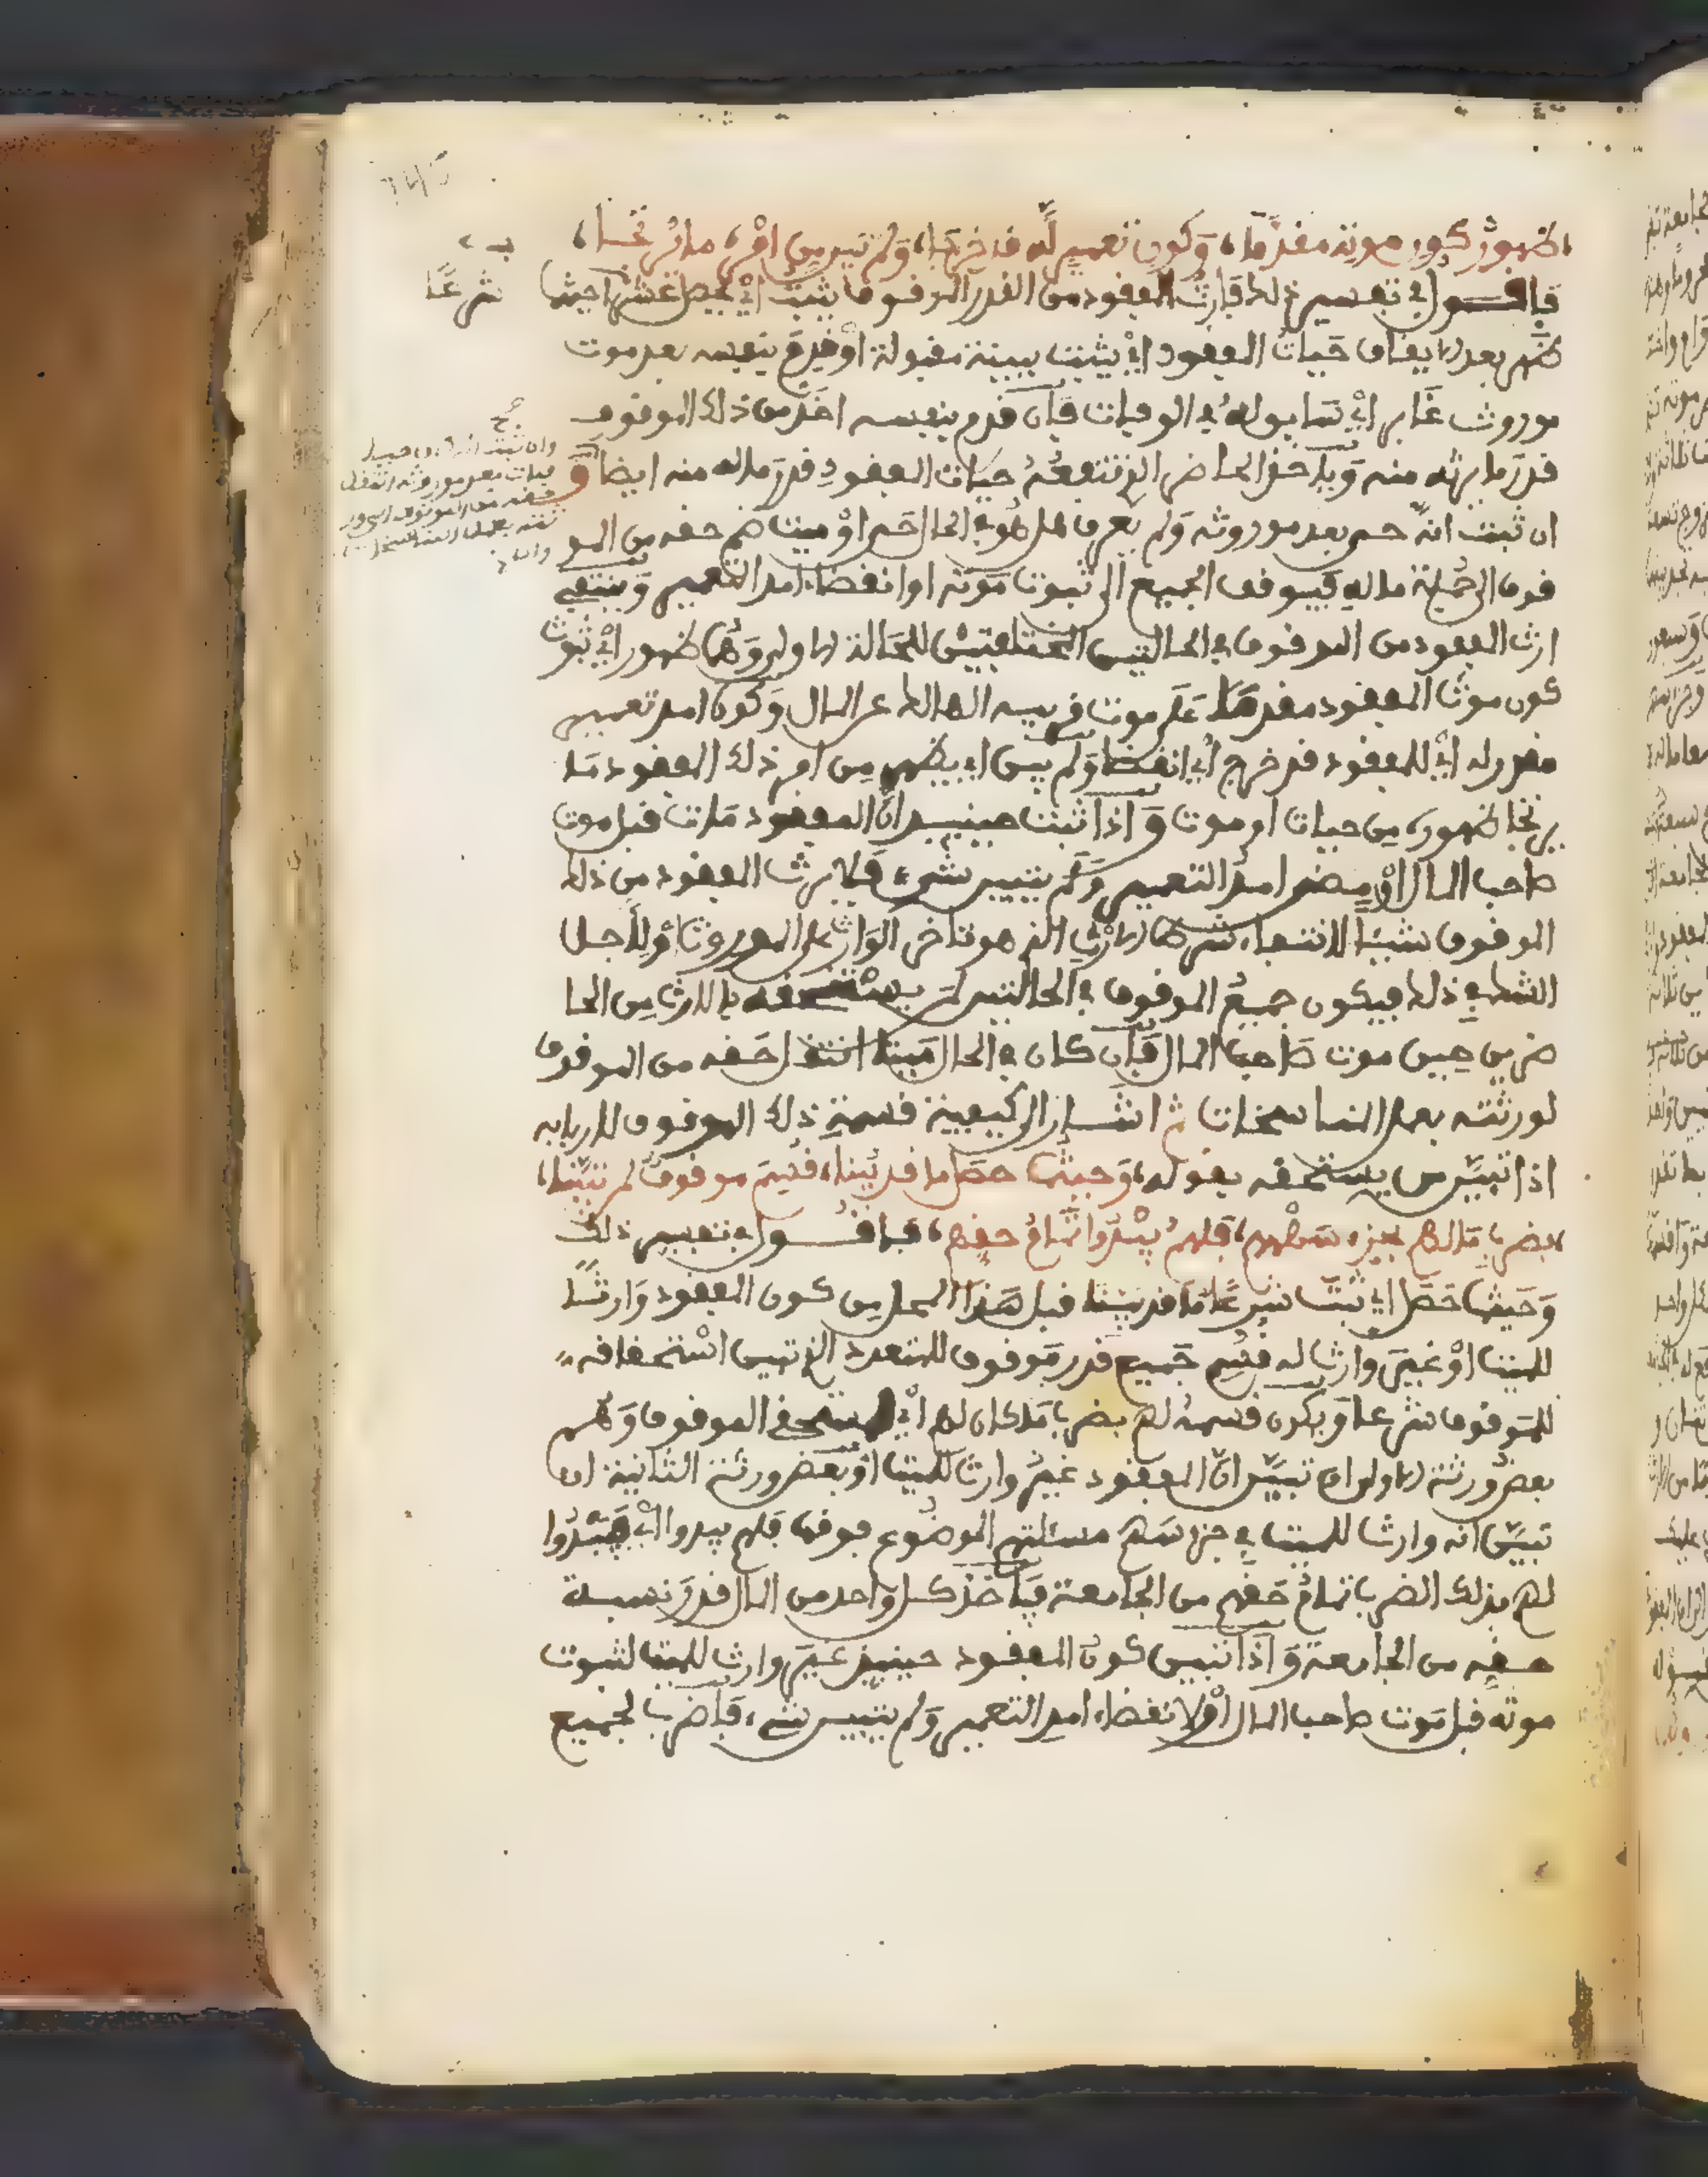 ظهور كون موته مقدما، وكون تعمير له قد خرجا، ولم تبن من امره ما يرتجا،
فاقول في تفسير ذلك فارث المفقود من القدر الموقوف يثبت اي يحصل حيثما شرعا
ظهر بعد الايقاف حيات المفقود اي يثبت ببينة مقبولة او قدم بنفسه بعد موت
موروث غابر اي سابق له في الوفيات فان قدم بنفسه اخذ من ذلك الموقوف
قدر ما يرثه منه وياخذ الحاضر الذي تنفعه حيات المفقود قدر ماله منه ايضا و
ان ثبت انه حي بعد موروثه ولم يعرف هل هو في الحال حي او ميت ضم حقه من المو
قوف الى جملة ماله فيوقف الجميع الى ثبوت موته او انقضاء امد التعمير وينتفي
ارث المفقود من الموقوف في الحالتين المختلفتين للحالة الاولى وهما ظهور اي ثبوت
كون موت المفقود مقدما على موت قريبه الهالك عن المال وكون امد تعمير
مقدر له اي للمفقود قد خرج اي انقضا ولم يبن اي يظهر من امر ذلك المفقود ما
يرتجا ظهوره من حيات او موت واذا ثبت حينئذ ان المفقود مات قبل موت
صاحب المال او مضى امد التعمير ولم يتبين شيء فلا يرث المفقود من ذلك
الموقوف شيئا لانتفاء شرط الارث الذي هو تاخر الوارث على الموروث او لاجل
الشك في ذلك فيكون جميع الموقوف في الحالتين لمن يستحقه بالارث من الحا
ضر من حين موت صاحب المال فان كان في الحال ميتا انتقل حقه من الموقوف
لورثته بعمل المناسخات ثم اشار الى كيفية قسمة ذلك الموقوف لاربابه
اذا تبين من يستحقه بقوله، وحيثما حصل ما قد بينا، فقسم موقوف لمن تبينا،
بضرب مالهم بجزء سهمهم، فلهم يبدوا تمام حقهم، فاقول في تفسير ذلك
وحيثما حصل اي ثبت شرعا ما قد بينت قبل هذا المحل من كون المفقود وارثا
للميت او غير وارث له فقسم جميع قدر موقوف للمتعدد الذي تبين استحقاقه
للموقوف شرعا ويكون قسمه لهم بضرب ما كان لهم اي لمستحقي الموقوف وهم
بعض ورثة الاولى ان تبين ان المفقود غير وارث للميت او بعض ورثة الثانية ان
تبين انه وارث للميت في جزء سهم مسئلتهم الموضوع فوقها فلهم يبدوا اي يبدوا
لهم بذلك الضرب تمام حقهم من الجامعة فياخذ كل واحد من المال قدر نسبة
حقه من الجامعة واذا تبين كون المفقود حينئذ غير وارث للميت لثبوت
موته قبل موت صاحب المال او لانقضاء امد التعمير ولم يتبين شيء، فاضرب لجميع